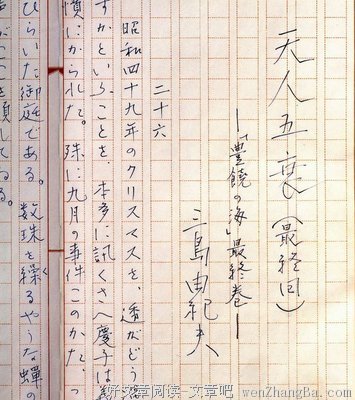 天人五衰（最終回）
―「豊饒の海」最終巻―
三島由紀夫
二十六
昭和四十九年のクリスマスを、透がどう
すかといふことを、本多に訊くさへ慶子は
憤にかられた。殊に九月の事件このかた、
ひらいた御庭である。数珠を繰るやうな蝉の
がここを領してゐる。
好文章阅读 文章吧 wenZhangBa.com